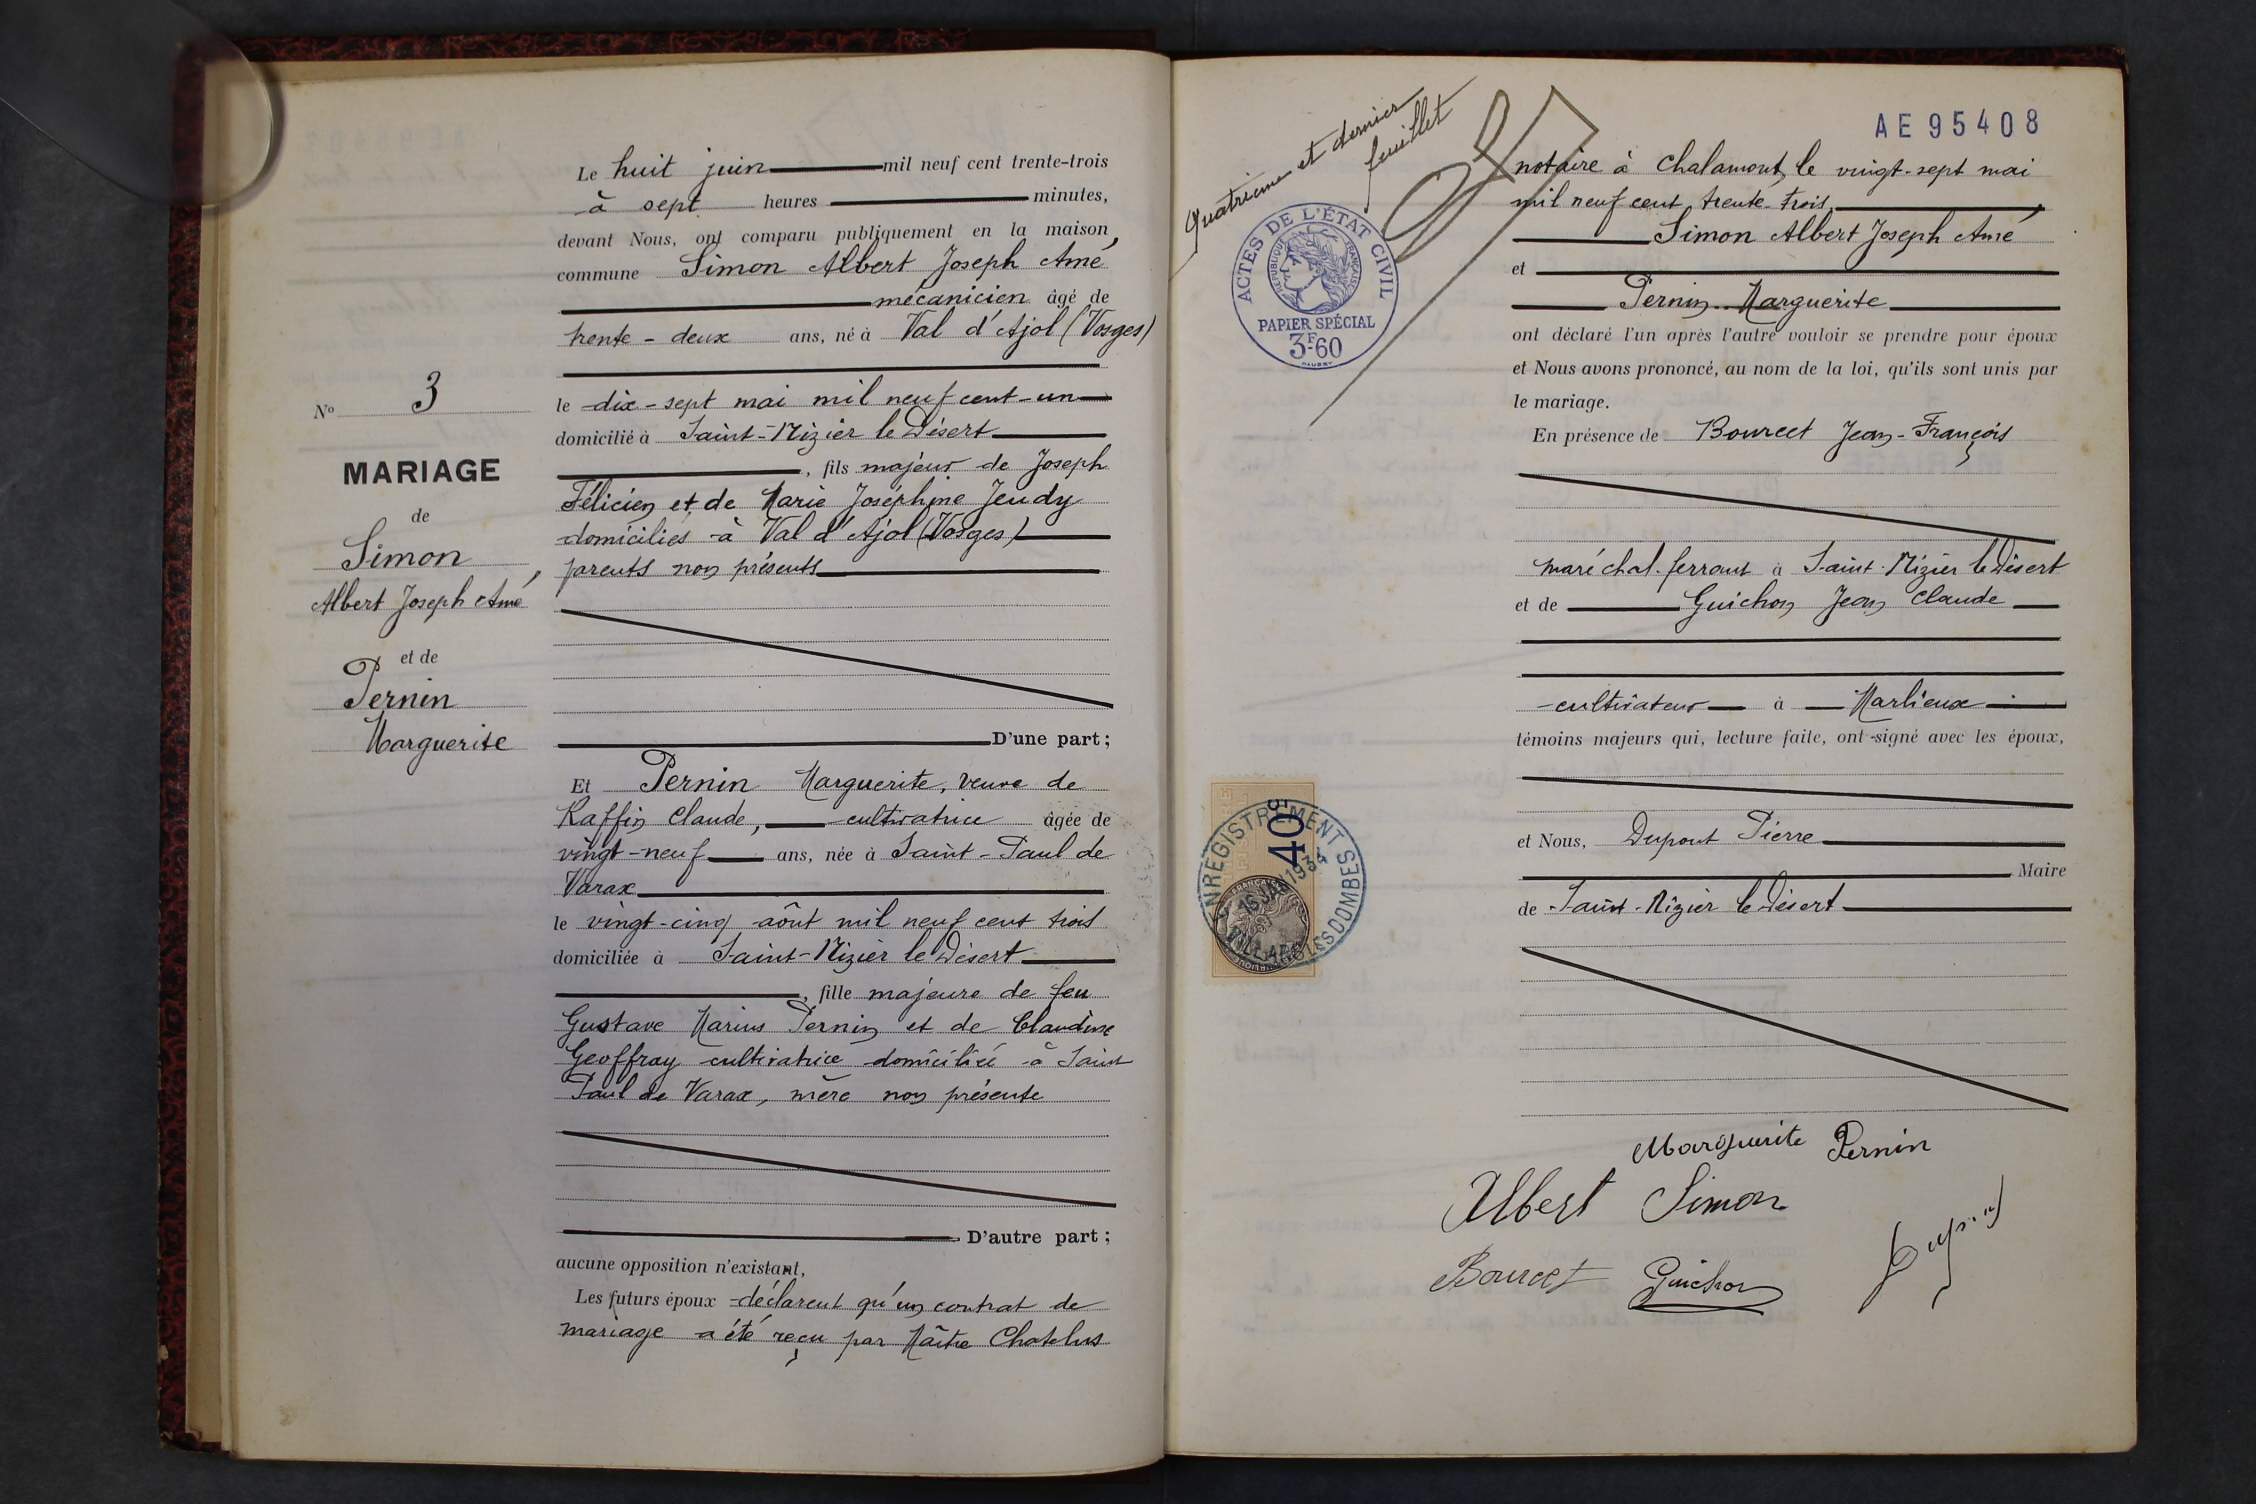 N° 3
MARIAGE
de
Simon
Albert Joseph Amé
et de
Pernin
Marguerite
Le huit juin mil neuf cent trente-trois
à sept heures minutes,
devant Nous, ont comparu publiquement en la maison
commune Simon Albert Joseph Amé
mécanicien âgé de
trente-deux ans, né à Val d'Ajol (Vosges)
le dix-sept mai mil neuf cent-un
domicilié à Saint-Nizier le Désert
, fils majeur de Joseph
Félicien et de Marie Joséphine Jeudy
domiciliés à Val d'Ajol (Vosges)
parents non présents
D'une part;
Et Pernin Marguerite, veuve de
Raffin Claude, cultivatrice âgée de
vingt-neuf ans, née à Saint-Paul de
Varax
le vingt-cinq août mil neuf cent trois
domiciliée à Saint-Nizier le Désert
, fille majeure de feu
Gustave Marius Pernin et de Claudine
Geoffray cultivatrice domiciliée à Saint
Paul de Varax, mère non présente
D'autre part;
aucune opposition n'existant,
Les futurs époux déclarent qu'un contrat de
mariage a été reçu par Maître Chatelus
Quatrième et dernier
feuillet
ACTES DE L'ÉTAT CIVIL
RÉPUBLIQUE FRANÇAISE
PAPIER SPÉCIAL
3F.60
AE 95408
notaire à Chalamont, le vingt-sept mai
mil neuf cent trente-trois
Simon Albert Joseph Amé
et
Pernin Marguerite
ont déclaré l'un après l'autre vouloir se prendre pour époux
et Nous avons prononcé, au nom de la loi, qu'ils sont unis par
le mariage.
En présence de Bourcet Jean-François
maréchal-ferrant à Saint-Nizier le Désert
et de Guichon Jean Claude
cultivateur à Marlieux
témoins majeurs qui, lecture faite, ont signé avec les époux,
et Nous, Dupont Pierre
Maire
de Saint-Nizier le Désert
ENREGISTREMENT
40
15 JAN 1934
VILLARS LES DOMBES
Marguerite Pernin
Albert Simon
Bourcet Guichon